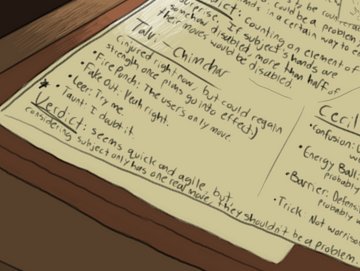 could be a problem
dict: counting on element of
in a certain way to
wise, if subject's hands are
somehow disabled, more than half of
their moves would be disabled.
Talu- Chimchar
injured right now, but could regain
strength once plan go into effect)
• Fire Punch: The users only move.
• Fake Out: Yeah right.
* • Leer: Try me
• Taunt: I doubt it.
Verdict: seems quick and agile, but
considering subject only has one real move, they shouldn't be a problem.
Ceci
• Confusion:
• Energy Ball:
probably
• Barrier: Defens
probably
• Trick: Not worriso